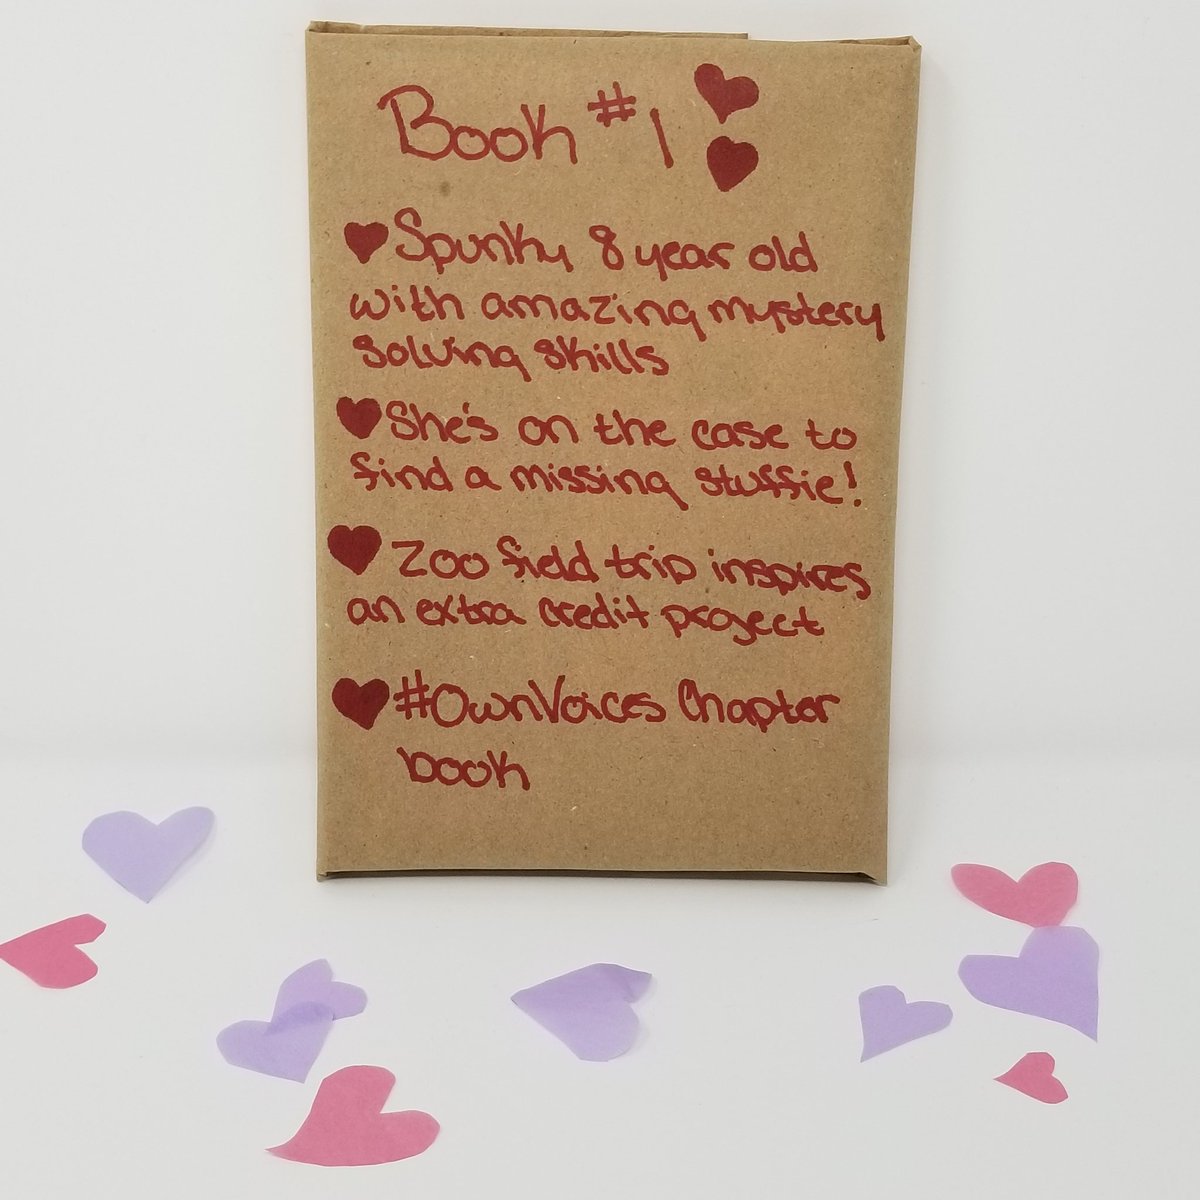 Book #1
Spunky 8 year old
with amazing mystery
solving skills
She's on the case to
find a missing stuffie!
Zoo field trip inspires
an extra credit project
#OwnVoices Chapter
book